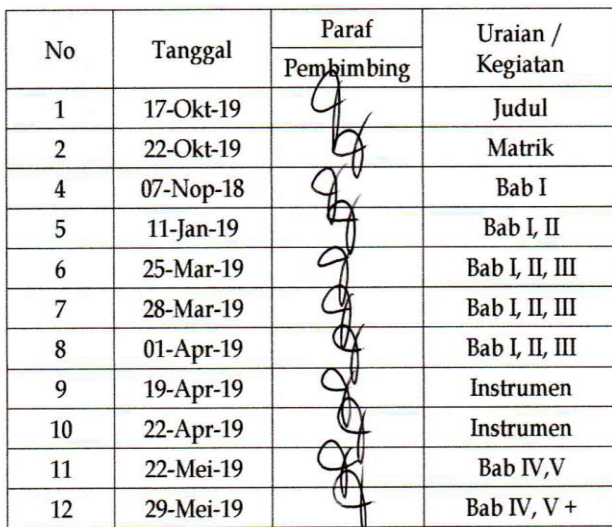 No Tanggal Paraf Uraian /
Pembimbing Kegiatan
1 17-Okt-19 Judul
2 22-Okt-19 Matrik
4 07-Nop-18 Bab I
5 11-Jan-19 Bab I, II
6 25-Mar-19 Bab I, II, III
7 28-Mar-19 Bab I, II, III
8 01-Apr-19 Bab I, II, III
9 19-Apr-19 Instrumen
10 22-Apr-19 Instrumen
11 22-Mei-19 Bab IV,V
12 29-Mei-19 Bab IV, V +